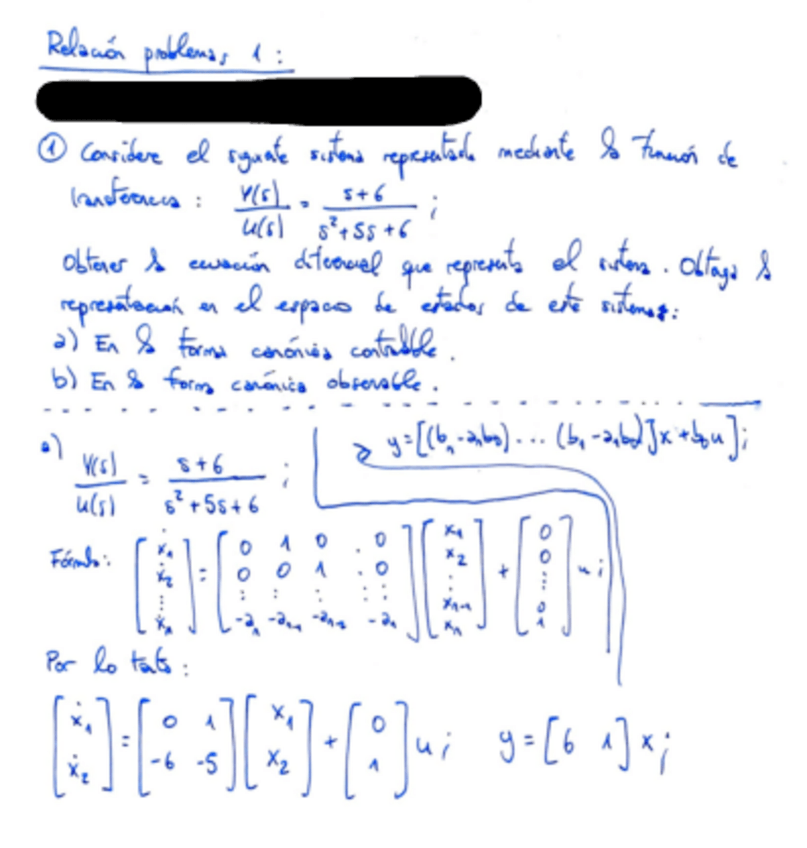 Relación problemas 1:
① Considere el siguiente sistema representado mediante la función de
transferencia: Y(s)/U(s) = s+6/s²+5s+6 ;
Obtener la ecuación diferencial que representa el sistema. Obtenga la
representación en el espacio de estados de este sistema:
a) En la forma canónica controlable.
b) En la forma canónica observable.
y=[(bₙ-aₙb₀)...(b₁-a₁b₀)]x+b₀u];
a) Y(s)/U(s) = s+6/s²+5s+6 ;
Fórmula: [ẋ₁ ẋ₂ ⋮ ẋₙ] = [0 1 0 . 0; 0 0 1 . 0; ⋮ ⋮ ⋮ ⋮ ⋮; -aₙ -aₙ₋₁ -aₙ₋₂ -a₁] [x₁ x₂ ⋮ xₙ₋₁ xₙ] + [0 0 ⋮ 0 1] u;
Por lo tanto:
[ẋ₁ ẋ₂] = [0 1; -6 -5] [x₁ x₂] + [0 1] u; y=[6 1]x;